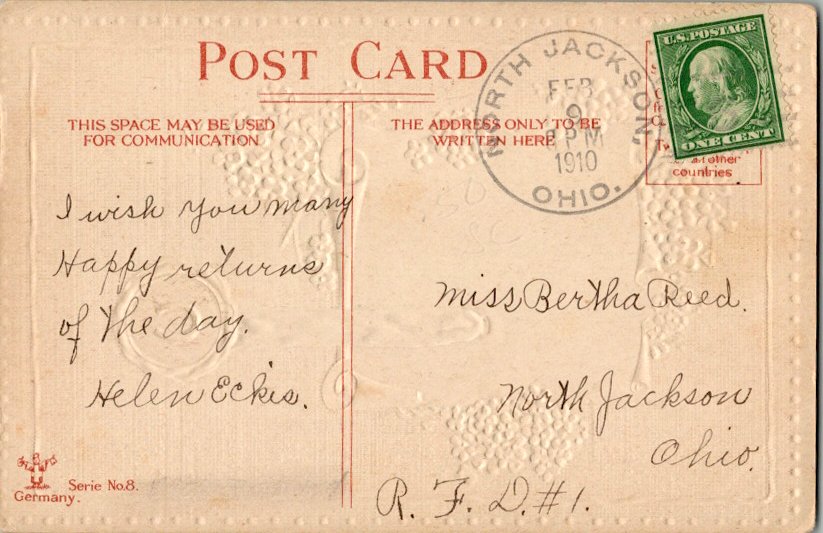 POST CARD
THIS SPACE MAY BE USED
FOR COMMUNICATION
THE ADDRESS ONLY TO BE
WRITTEN HERE
NORTH JACKSON,
FEB
9
PM
1910
OHIO.
U.S. POSTAGE
ONE CENT
other
countries
I wish you many
Happy returns
of the day.
Helen Eckis.
Miss Bertha Reed.
North Jackson
Ohio.
R. F. D. #1.
Serie No. 8.
Germany.